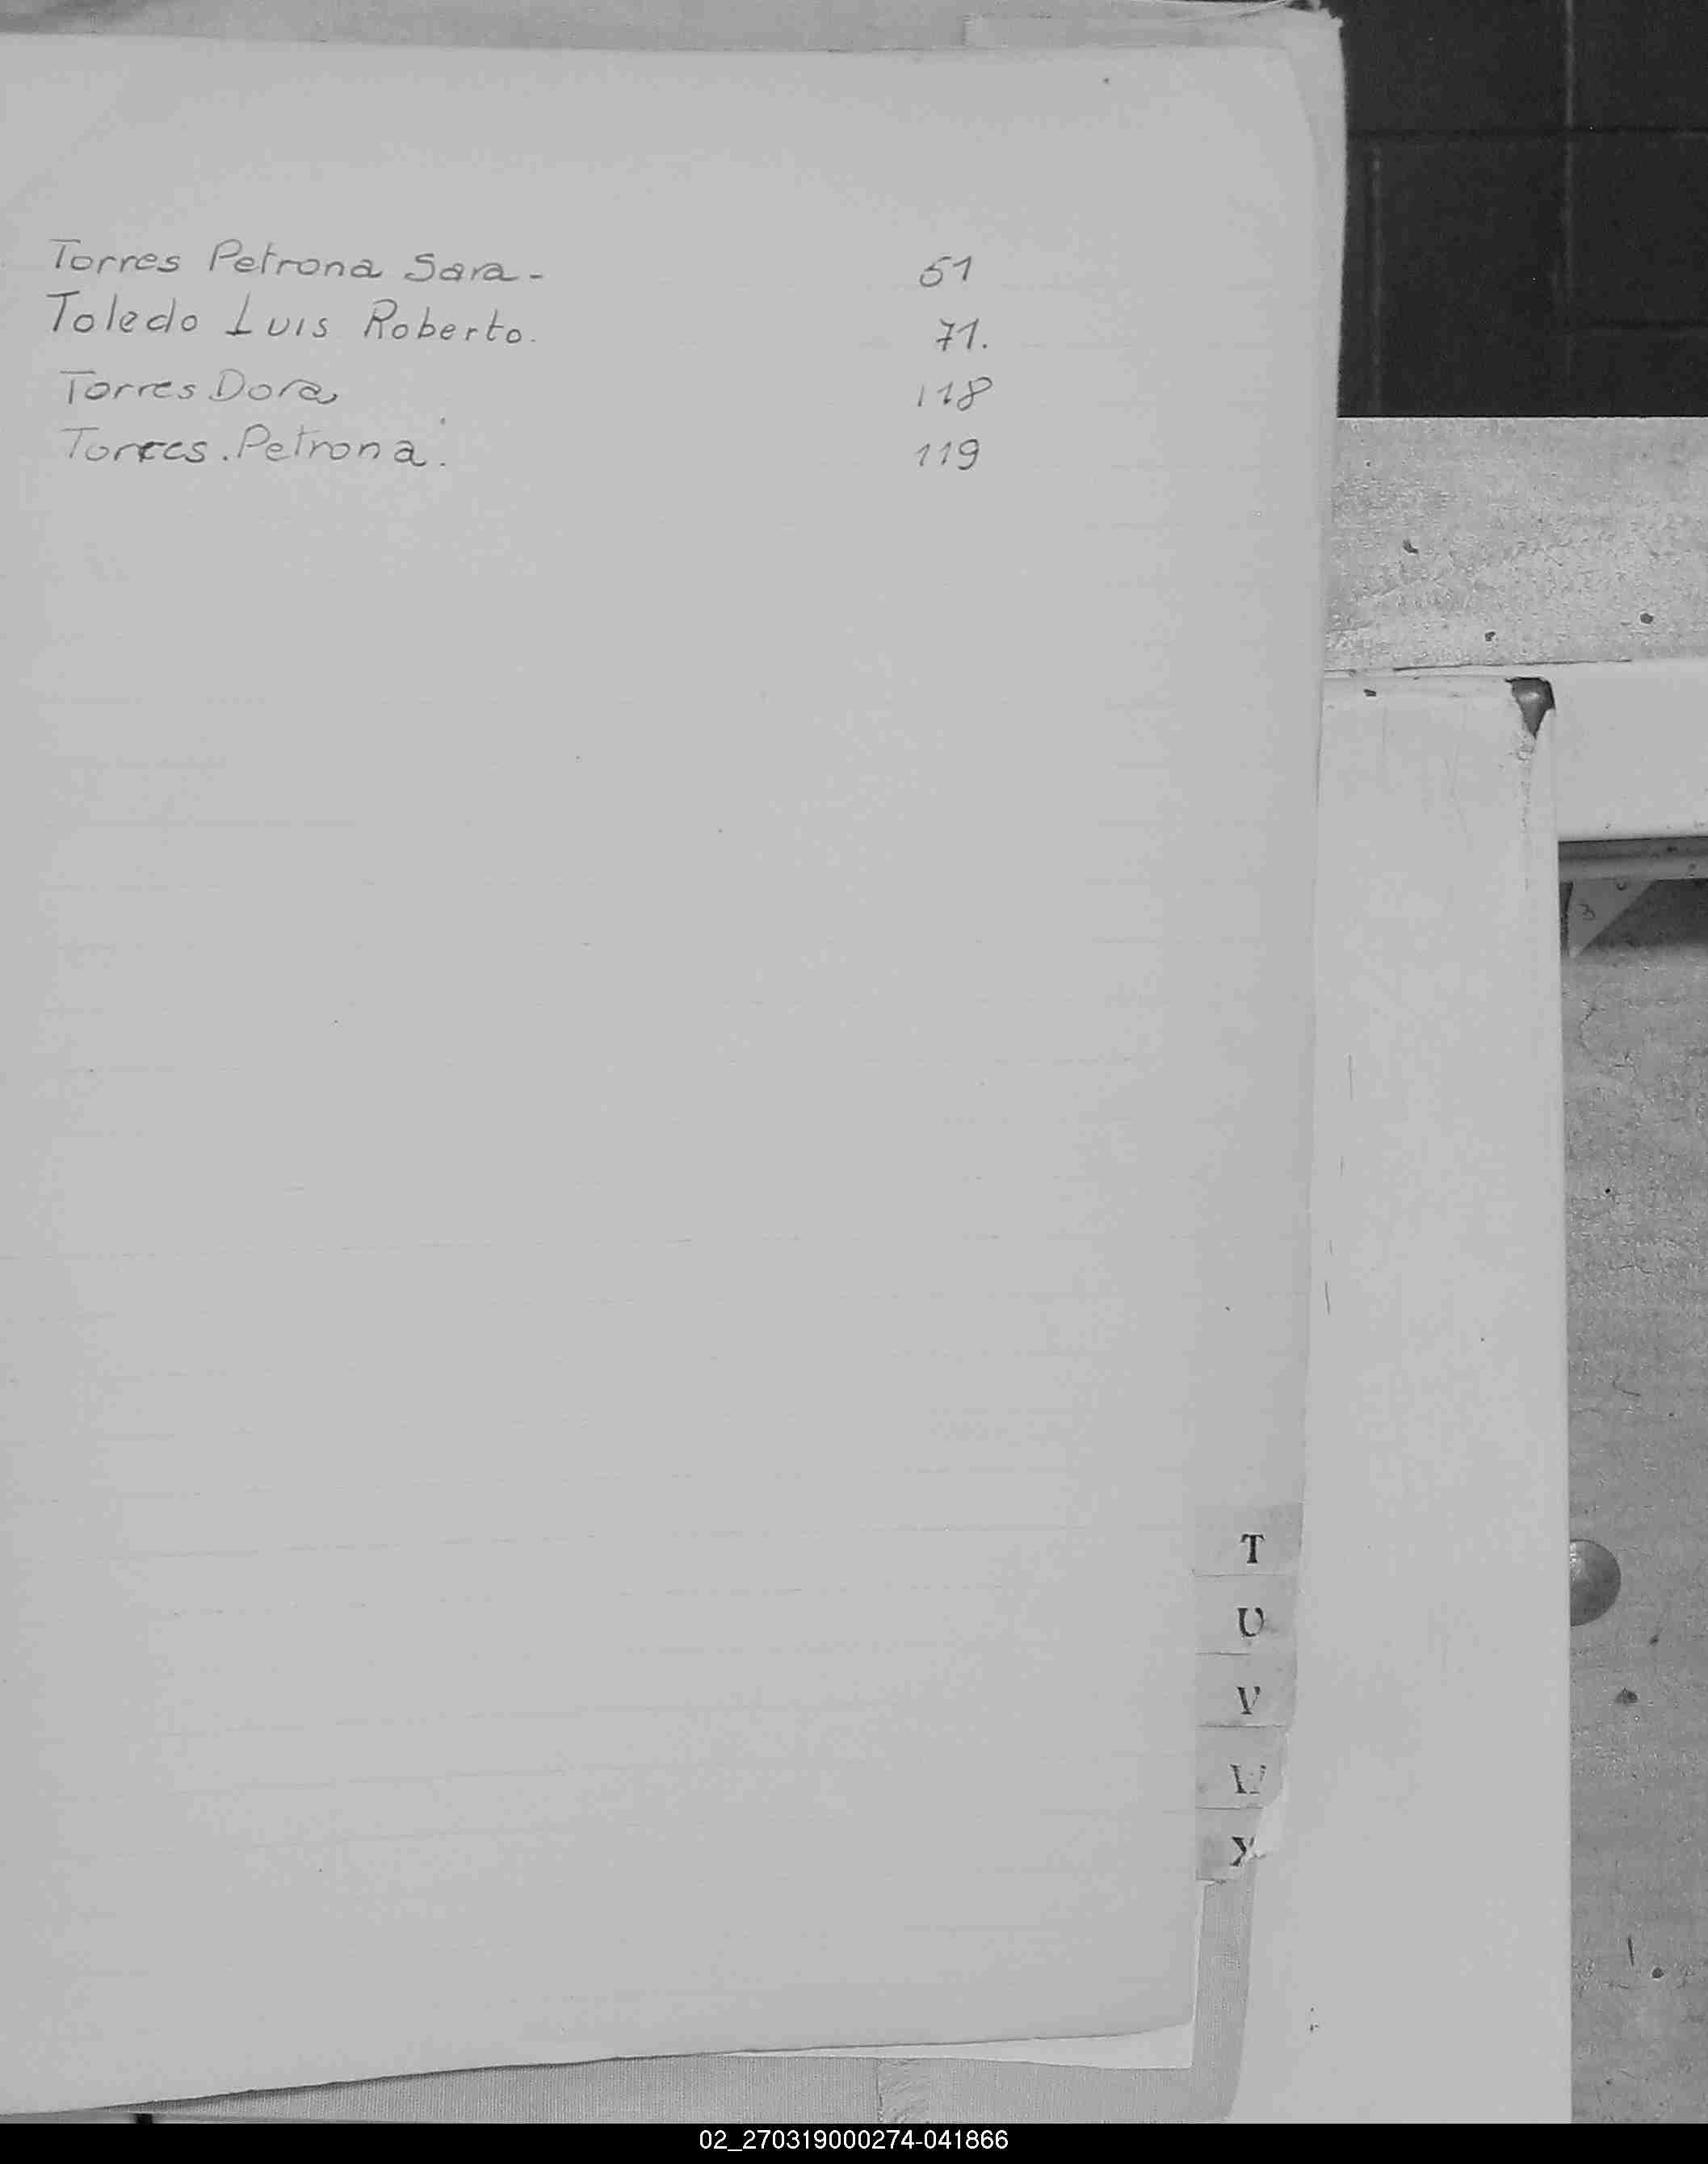 Torres Petrona Sara - 51
Toledo Luis Roberto. 71.
Torres Dora 118
Torres. Petrona. 119
T
U
V
W
X
3
02_270319000274-041866